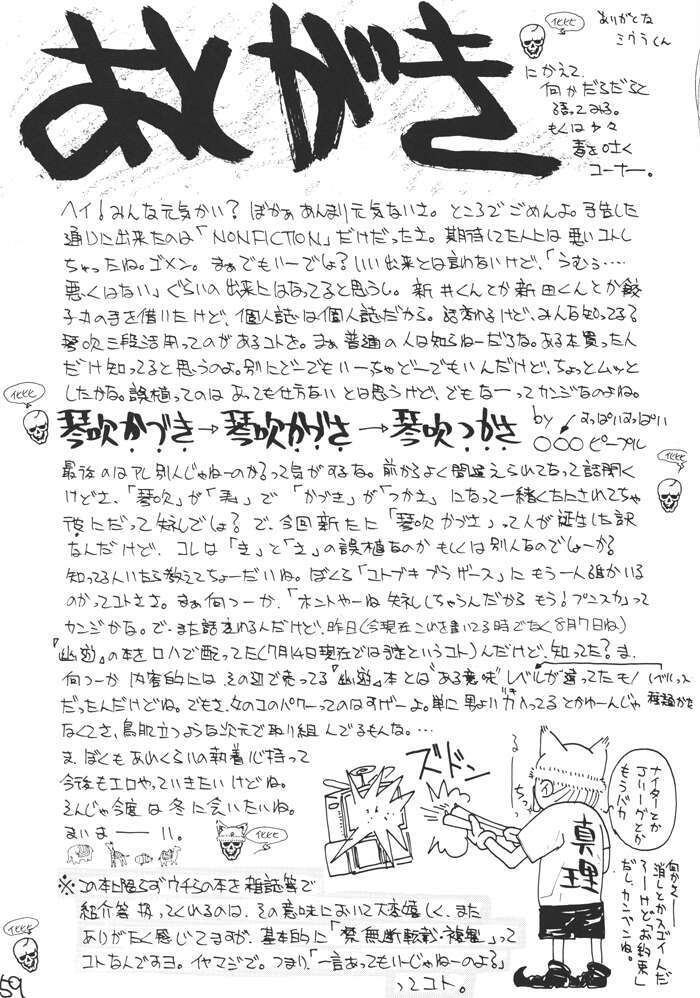 あとがき
ケケケ
ありがとな
ミウラくん
にかえて、
何かだらだらと
語ってみる。
もくは少々
毒を吐く
コーナー。
ヘイ!みんな元気かい?ぼかぁあんまり元気ないさ。ところでごめんよ。予告した
通りに出来たのは「NONFICTION」だけだったさ。期待してた人には悪いコトし
ちゃったね。ゴメン。まぁでもいーでしょ?いい出来とは言わないけど、「うむぅ…。
悪くはない」ぐらいの出来にはなってると思うし。新井くんとか新田くんとか餃
子の手を借いたけど、個人誌は個人誌だから。話変わるけど、みんな知ってる?
琴吹三段活用ってのがあるコトを。まぁ普通の人は知らねーだろな。ある本買った人
だけ知ってると思うのよ。別にどーでもいーちゃどーでもいんだけど、ちょっとムッと
したかな。誤植ってのはあっても仕方ないとは思うけど、でもなーってカンジなのよね。
ケケケ
琴吹かづき→琴吹かづさ→琴吹つかさ
by
○○○ピープル
ケケケ
最後のはアレ別人じゃねーのか?って気がするな。前からよく間違えられてるって話聞く
けどさ、「琴吹」が「毒」で「かづき」が「つかさ」になって一緒くたにされてちゃ
彼にだって失礼でしょ?で、今回新たに「琴吹かづさ」って人が誕生した訳
なんだけど、コレは「き」と「さ」の誤植なのかもしくは別人なのでしょーか?
知ってる人いたら教えてちょーだいね。ぼくら「コトブキブラザース」にもう一人誰かいる
のかってコトさ。まぁ何つーか、「ホントやーね失礼しちゃうんだから もう!プンスカ」って
カンジかな。で、また話変わるんだけど、昨日(今現在これを書いてる時でなく8月7日ね)
『幽遊』の本をロハで配ってた(7月14日現在では予定というコト)んだけど、知ってた?ま、
何つーか内容的にはその辺で売ってる『幽遊』本とは“ある意味”レベルが違ってたモノ
レベルって
種類かな
だったんだけどね。でもさ、女のコのパワーってのはすげーよ。単に男より力入ってるとかゆーんじゃ
なくてさ、鳥肌立つような次元で取り組んでるもんな。…
ま、ぼくもあれくらいの執着心持って
今後もエロやっていきたいけどね。
そんじゃ今度は冬に会いたいね。
ケケケ
ズドン
る
ちっ
ナイターとか
Jリーグとか
もうバカ
真理
※この本に限らずウチらの本を雑誌等で
紹介等扱ってくれるのは、その意味において大変嬉しく、また
ありがたく感じてますが、基本的に「禁無断転載・複製」って
コトなんですヨ。イヤマジで。つまり、「一言あってもいーじゃねーのよる?」
ってコト。
ケケケ
59